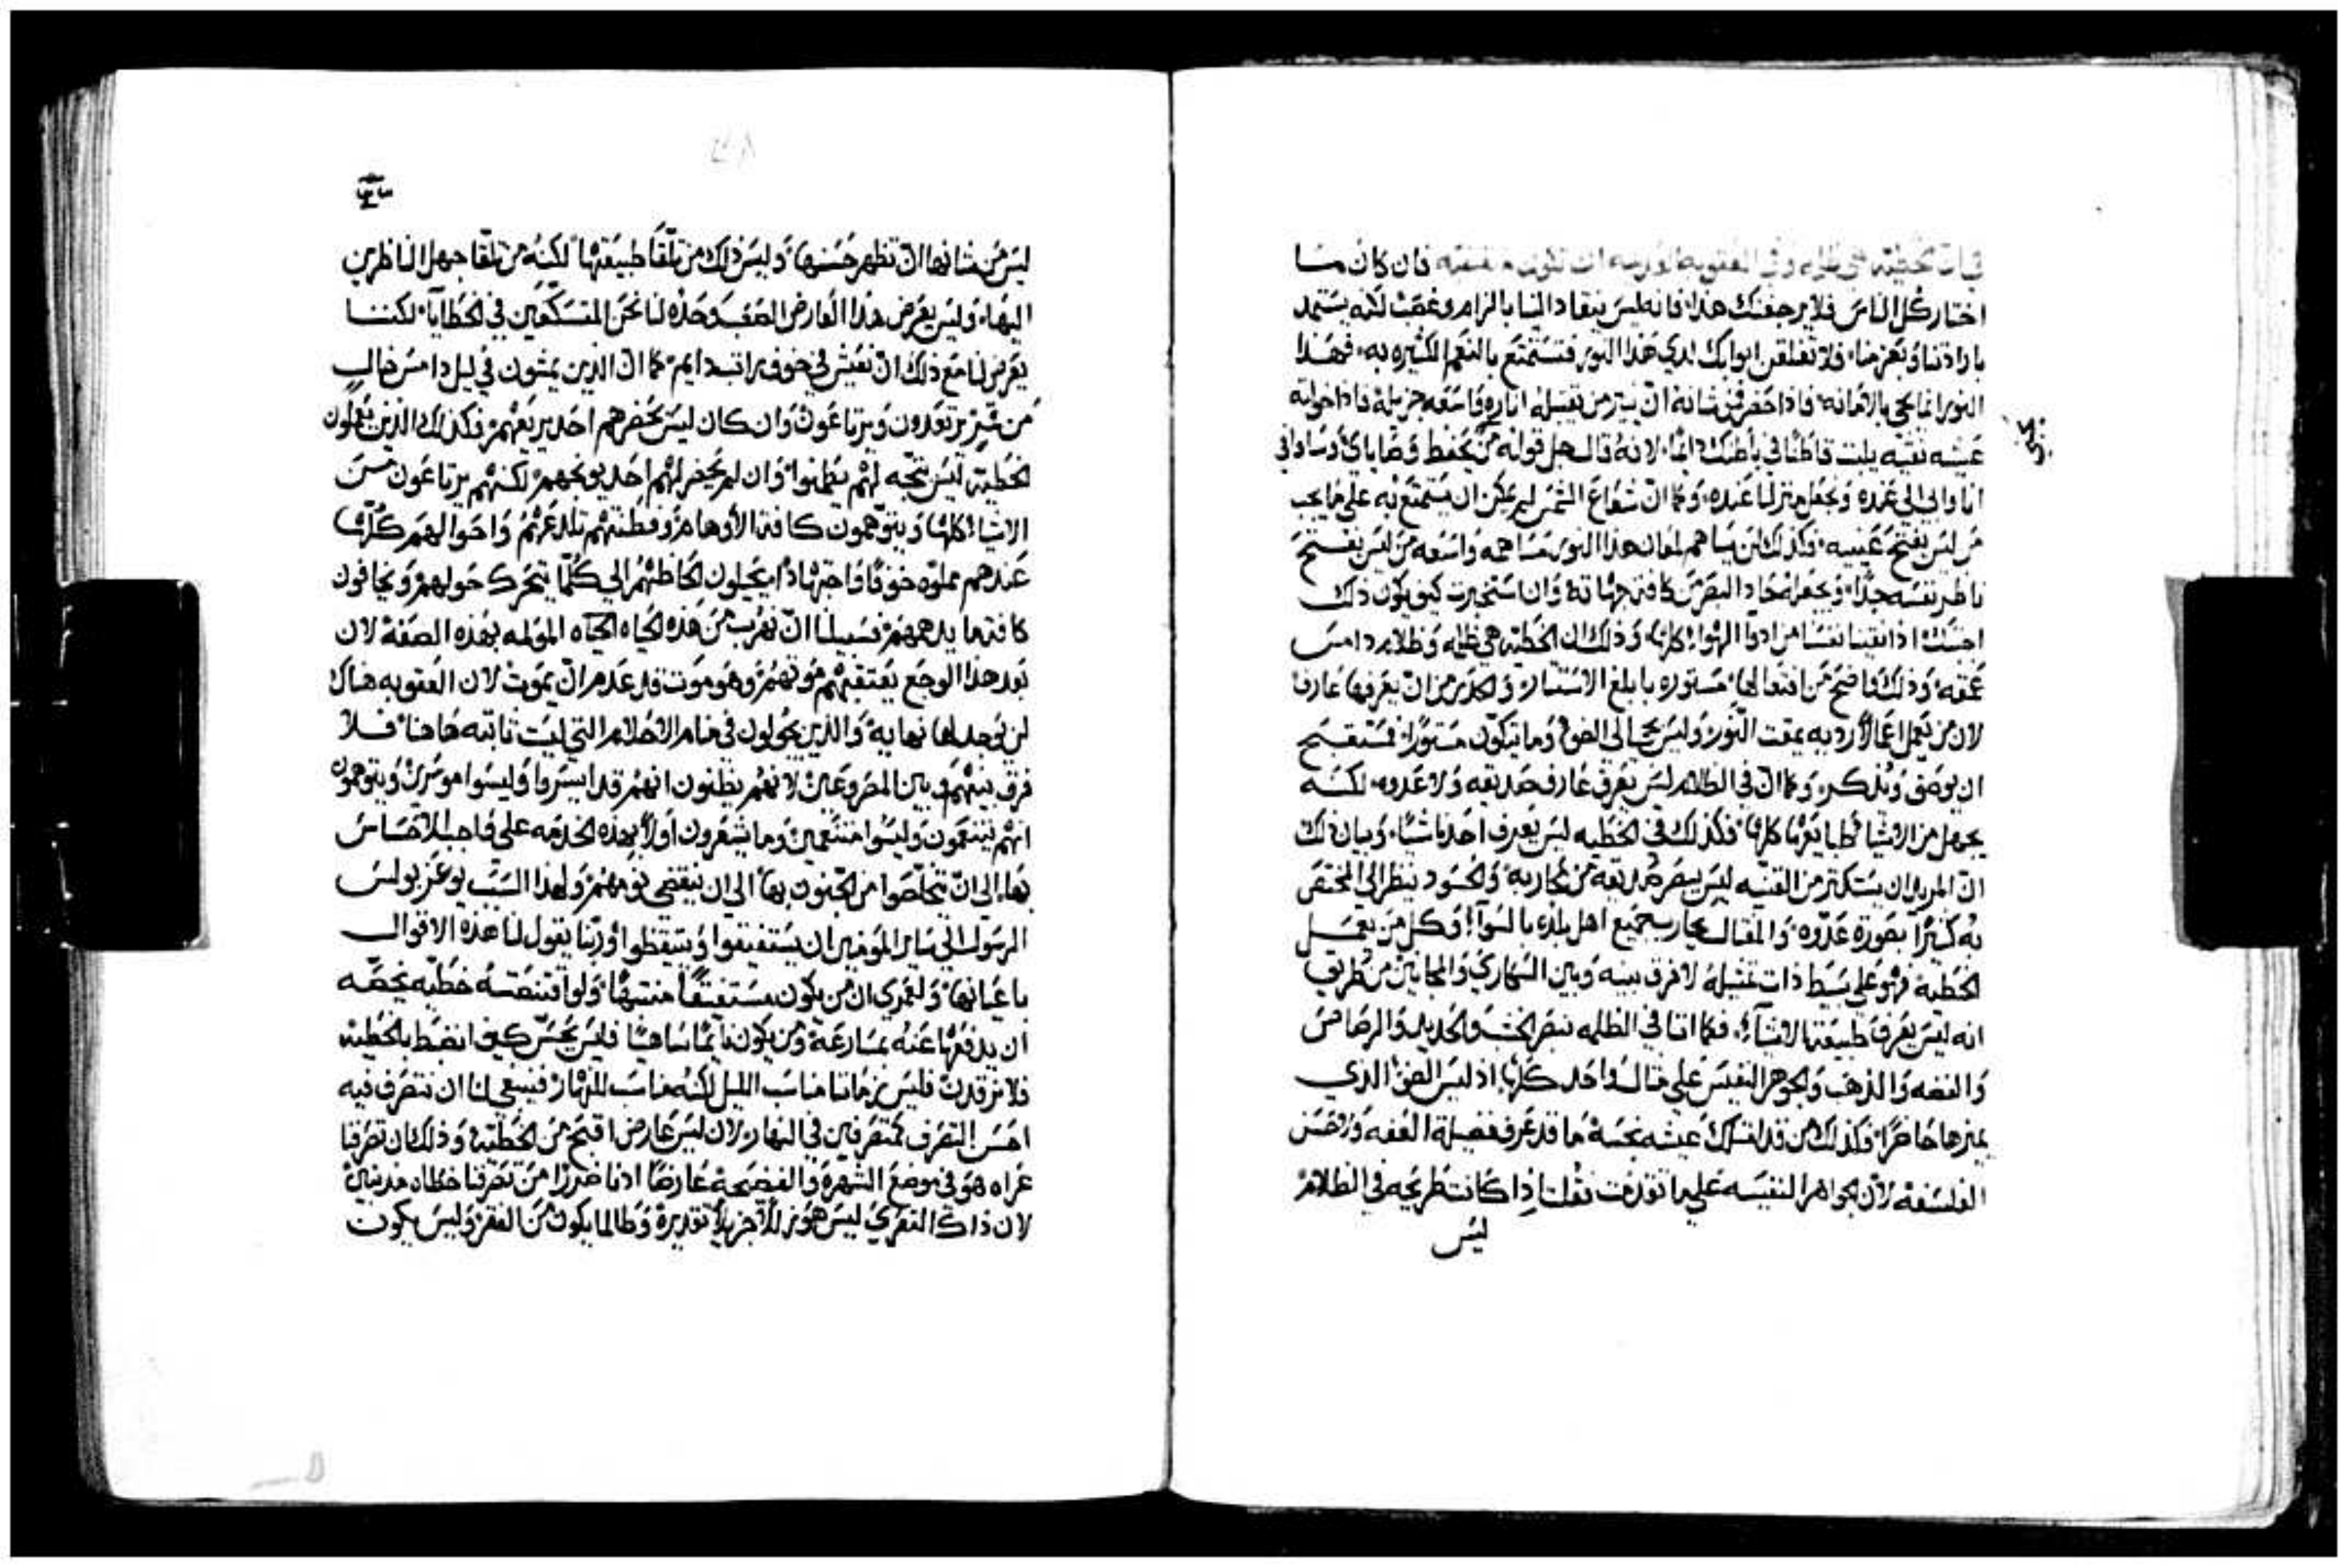 فان كان ما
اختار كل الناس فلا يرجفنك هذا فانه ليس ينقاد الينا بالزام وغصب لكنه يستمد
بارادتنا وبعزمنا فلا تغلقن ابوابك لدي هذا النور فتستمتع بالنعم الكثيره به فهذا
النور انما يجي بالامانه فاذا حضر فمن شانه ان ينير من تقبله اناره واسعه جزيلة فاذا خولته
عيشه نقيه يلبث قاطنا في باطنك دايما لانه قال جل قوله من يحفظ وصاياي وساوافي
انا وابي الي عنده ونجعل منزلنا عنده وكما ان شعاع الشمس ليس يمكن ان يستمتع به علي ما يجب
من ليس يفتح عينيه فكذلك لن يساهم لمعان هذا النور مساهمه واسعه من ليس يفتح
ناظر نفسه جدا ويجعله حاد البصر من كافة جهاته وان استخبرت كيف يكون ذلك
اجبتك اذا نقينا نفسنا من ادوا الهوا كلها وذلك ان الخطيه هي ظلمه وظلام دامس
عمقه وذلك واضح من افتعالها مستوره بابلغ الاستتار والحذر من ان يعرفها عارف
لان من يعمل اعمالا رديه يمقت النور وليس يجي الي الضو وما يتكون مستورا فمستقبح
ان يوصف ويذكر وكما ان في الظلام ليس يعرف عارف صديقه ولا عدوه لكنه
يجهل من الاشيا طبايعها كلها فكذلك في الخطيه ليس يعرف احدنا شيا وبيان ذلك
ان المريد ان يستكثر من القنيه ليس يبصر صديقه من محاربه والحسود ينظر الي المختص
به كثيرا بصورة عدوه والمغتال يحارب جميع اهل بلده بالسوا وكل من يعمل
الخطيه فهو علي بسيط ذات تمثيله لا فرق بينه وبين السكاري والمجانين من طريق
انه ليس يعرف طبيعة الاشيا فكما اننا في الظلمه نبصر الخشب والحديد والرصاص
والفضه والذهب والجوهر النفيس علي مثال واحد كلها اذ ليس الضو الذي
يميزها حاضرا فكذلك من قد امتلك عيشه نجسة ما قد عرف فضيلة العفه وحسن
الفلسفه لان الجواهر النفيسه علي ما تقدمت فقلت اذا كانت طريحه في الظلام
ليس
ليس من شانها ان تظهر حسنها وليس ذلك من تلقا طبيعتها لكنه من تلقا جهل الناظرين
اليها وليس يعرض هذا العارض الصعب وحده لنا نحن المتسكعين في الخطايا لكننا
يعرض لنا مع ذلك ان نعيش في خوف راتب دايم كما ان الذين يمشون في ليل دامس خالي
من قمر يرتعدون ويرتاعون وان كان ليس يحضرهم احد يريعهم فكذلك الذين يعملون
الخطيه ليس يتجه لهم يطمنوا وان لم يحضر لهم احد يوبخهم لكنهم يرتاعون من
الاشيا كلها ويتوهمون كافة الاوهام وفطنتهم تلدغهم واحوالهم كلها
عندهم مملوه خوفا واجتهادا يجيلون الحاظهم الي كلما يتحرك حولهم ويخافون
كافة ما يدهمهم فسبيلنا ان نهرب من هذه الحياه الحياه المولمه بهذه الصفه لان
بعد هذا الوجع يعتقبهم موتهم وهو موت قد عدم ان يموت لان العقوبه هناك
لن يوجد لها نهايه والذين يحولون في منام الاحلام التي ليست ثابته هاهنا فلا
فرق بينهم وبين المصروعين لانهم يظنون انهم قد ايسروا وليسوا موسرين ويتوهمون
انهم يتنعمون وليسوا متنعمين وما يشعرون اولا بهذه الخدعه علي واجب الاحساس
بها الي ان يتخلصوا من الجنون بها الي ان ينقضي نومهم ولهذا السبب يوعز بولس
الرسول الي ساير المومنين ان يستفيقوا ويستيقظوا وربنا يقول لنا هذه الاقوال
باعيانها ولعمري ان من يكون مستفيقا منتبها ولو اقتنصته خطيه يمكنه
ان يدفعها عنه بمسارعة ومن يكون نايما ساهيا فليس يحس كيف انضبط بالخطيه
فلا نرقدن فليس زماننا مناسب الليل لكنه مناسب للنهار فينبغي لنا ان نتصرف فيه
احسن التصرف كمتصرفين في النهار لان ليس عارض اقبح من الخطيه وذلك ان تصرفنا
عراه هو في موضع الشهرة والفضيحه عارضا ادنا ضررا من تصرفنا خطاه مذنبين
لان ذاك التعري ليس هو زللا جزيلا تقديره وطالما يكون من الفقر وليس يكون